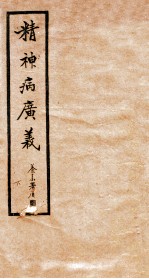 精神病廣義